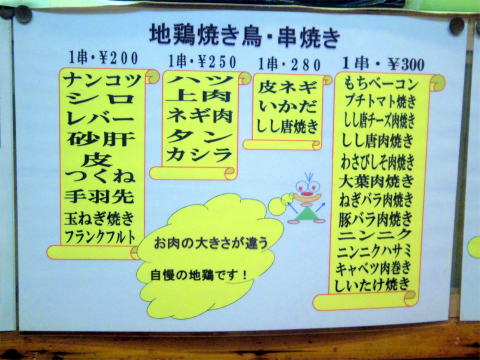 地鶏焼き鳥・串焼き
1串・¥200
ナンコツ
シロ
レバー
砂肝
皮
つくね
手羽先
玉ねぎ焼き
フランクフルト
1串・¥250
ハツ
上肉
ネギ肉
タン
カシラ
1串・280
皮ネギ
いかだ
しし唐焼き
1串・¥300
もちベーコン
プチトマト焼き
しし唐チーズ肉焼き
しし唐肉焼き
わさびしそ肉焼き
大葉肉焼き
ねぎバラ肉焼き
豚バラ肉焼き
ニンニク
ニンニクハサミ
キャベツ肉巻き
しいたけ焼き
お肉の大きさが違う
自慢の地鶏です！